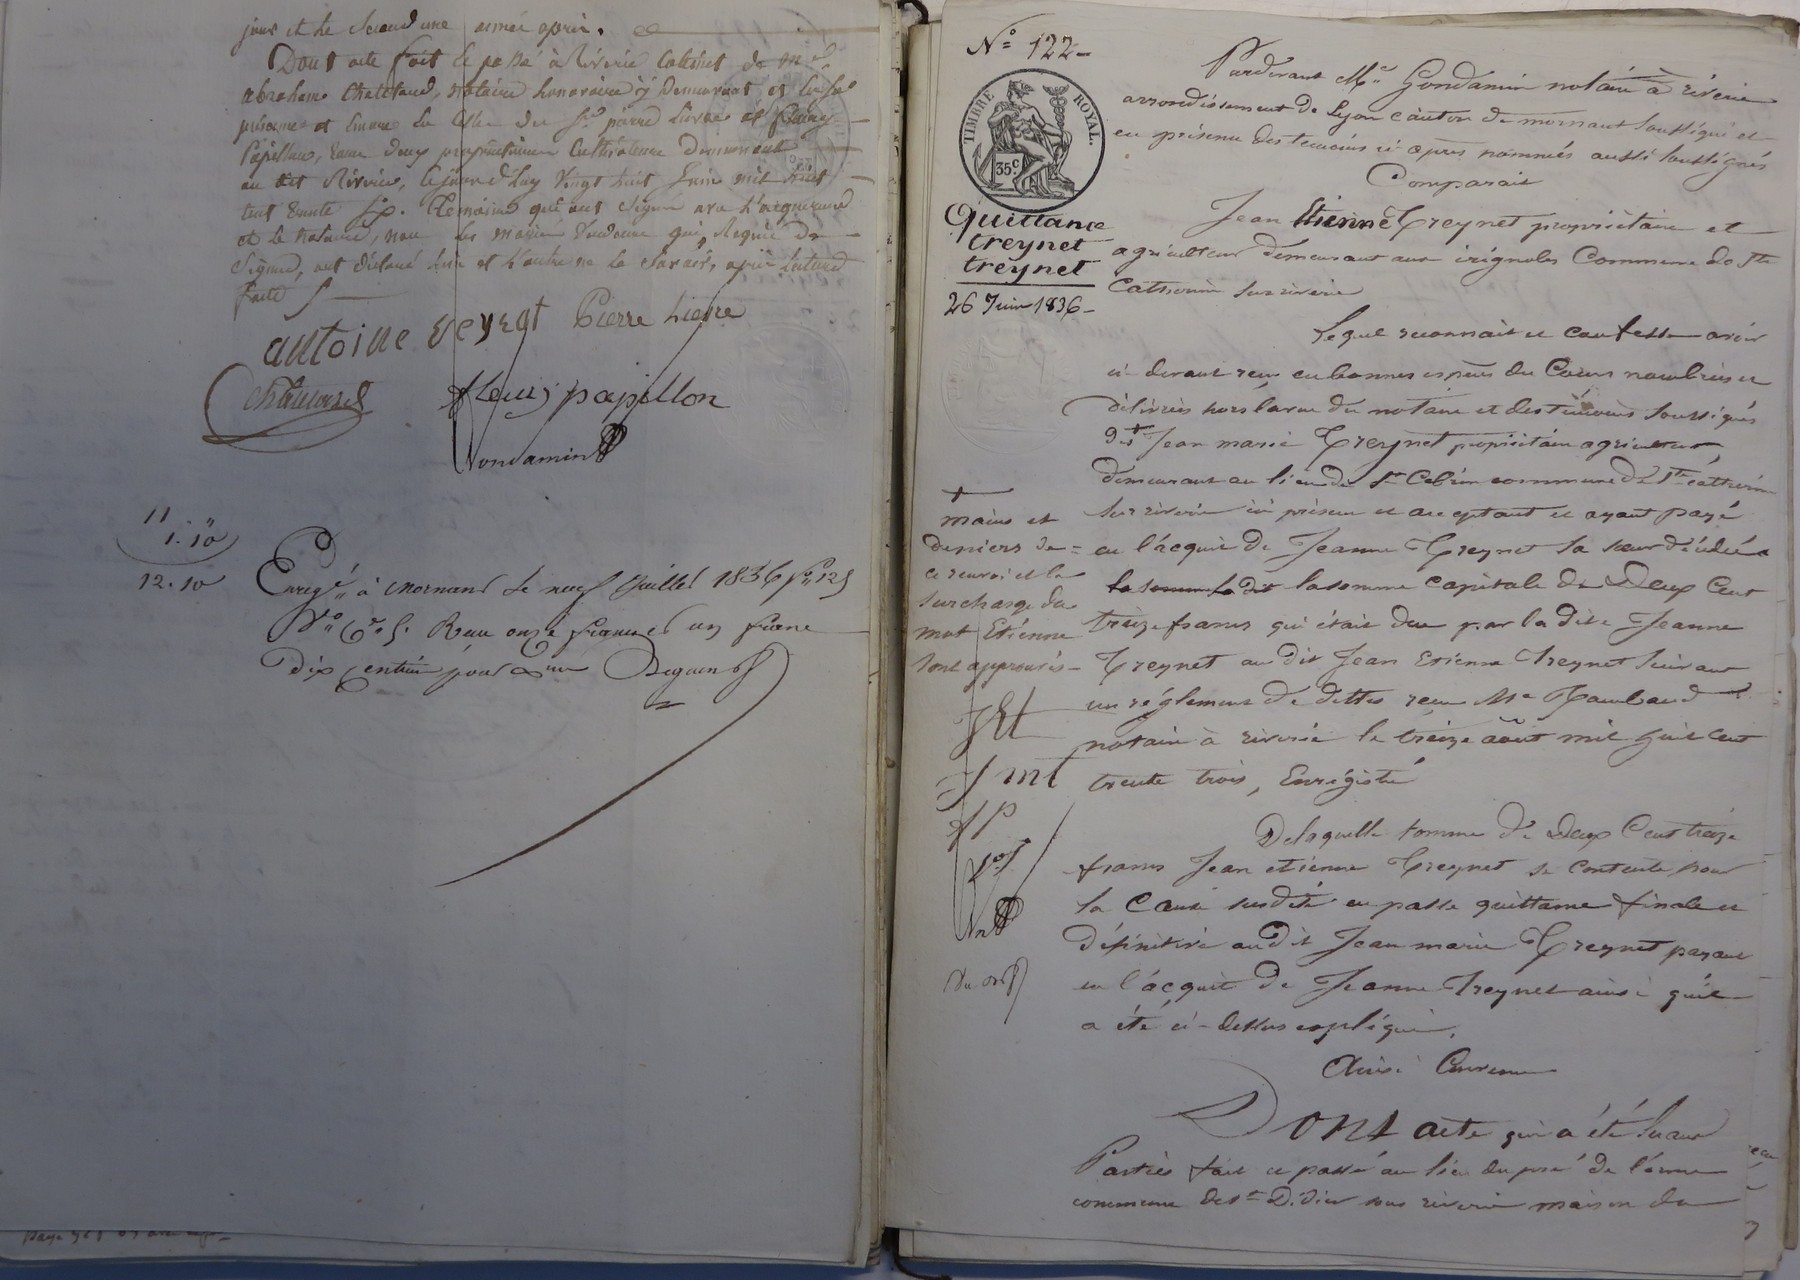 jour et le second une année après.
Dont acte fait et passé à Riverie cabinet de Me
abraham Chatelard, notaire honoraire y demeurant et en sa
présence et encore en celle des Srs pierre Lierre et fleury
Papillon, tous deux propriétaires cultivateurs demeurant
au dit Riverie, le jourd'huy vingt huit Juin mil huit
cent trente six. Témoins qui ont signé avec l'acquéreur
et le notaire, non les mariés vendeurs qui, Requis de
signer, ont déclaré l'un et l'autre ne le savoir, après lecture
faite
antoine
Pierre Lierre
fleury papillon
Gondamin
11 "
1. 10
12. 10
Enregé à Mornant le neuf Juillet 1836 fo 125
Vo Ce 5. Reçu onze francs et un franc
dix centimes pour
No 122
TIMBRE ROYAL.
35c
Quittance
treynet
treynet
26 Juin 1836
Pardevant Me Gondamin notaire à riverie
arrondissement de Lyon canton de mornant soussigné et
en présence des temoins ci-après nommés aussi soussignés
Comparait
Jean Etienne Treynet propriétaire et
agriculteur demeurant aux irignoles Commune de Ste
Catherine sur riverie
Lequel reconnait et confesse avoir
ci-devant reçu en bonnes espèces du Cours nombrées et
délivrées hors la vue du notaire et des témoins soussignés
des + Jean marie Treynet propriétaire agriculteur,
demeurant au lieu de St commune de Ste catherine
sur riverie ici présent et acceptant et ayant payé
en l'acquit de Jeanne Treynet sa sœur décédée
la somme la dit la somme capitale de Deux Cent
treize francs qui était due par la dite Jeanne
Treynet au dit Jean Etienne Treynet suivant
un réglement de dettes reçu Me Rambaud
notaire à riverie le treize août mil huit cent
trente trois, Enrégistré
De laquelle somme de Deux Cent treize
francs Jean etienne Treynet se contente pour
la Cause susdite en passe quittance finale et
définitive au dit Jean marie Treynet payant
en l'acquit de Jeanne Treynet ainsi qu'il
a été ci-dessus expliqué.
Ainsi Convenu
Dont acte qui a été lu aux
Parties fait et passé au lieu de l'
commune de St Didier sous riverie maison du
+
mains et
deniers de
ce renvoi et la
surcharge du
mot Etienne
sont approuvés
JEt
J mt
f P